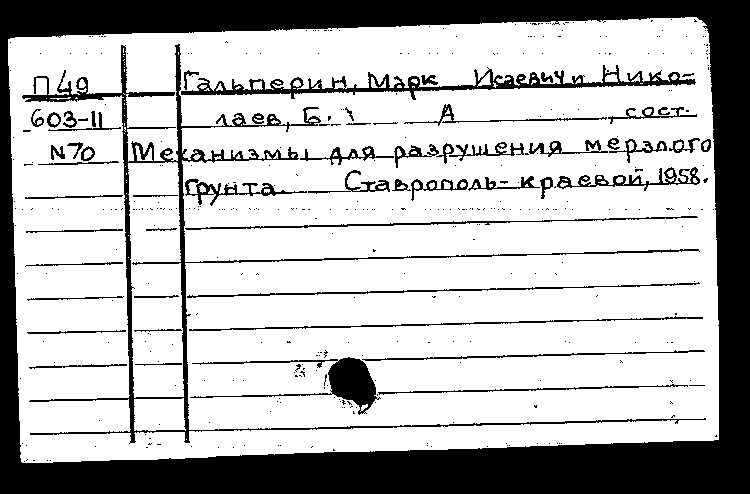 П49 Гальперин, Марк Исаевич и Нико-
603-11 лаев, Б. А , сост.
N70 Механизмы для разрушения мерзлого
грунта. Ставрополь-краевой, 1958.